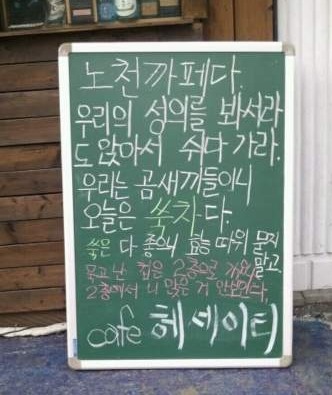 노천까페다.
우리의 성의를 봐서라
도 앉아서 쉬다 가라.
우리는 곰새끼들이니
오늘은 쑥차다.
쑥은 다 좋으니 효능 따위 묻지
말고,
묵고 난 컵은 2층으로 가져와
2층에서 니 맞은 거 안보인다,
cafe 헤세이티